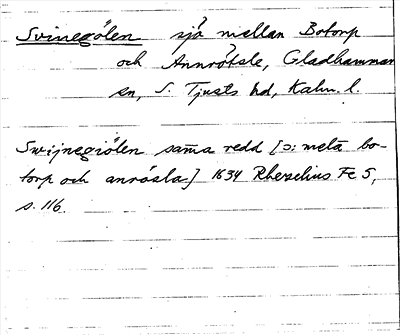 Svinegölen sjö mellan Botorp
och Annrötsle, Gladhammar
sn, S. Tjusts hd, Kalm. l.
Swijnegiölen sama redd [ɔ: metā bo-
torp och anrösla] 1634 Rhezelius Fe 5,
s. 116.